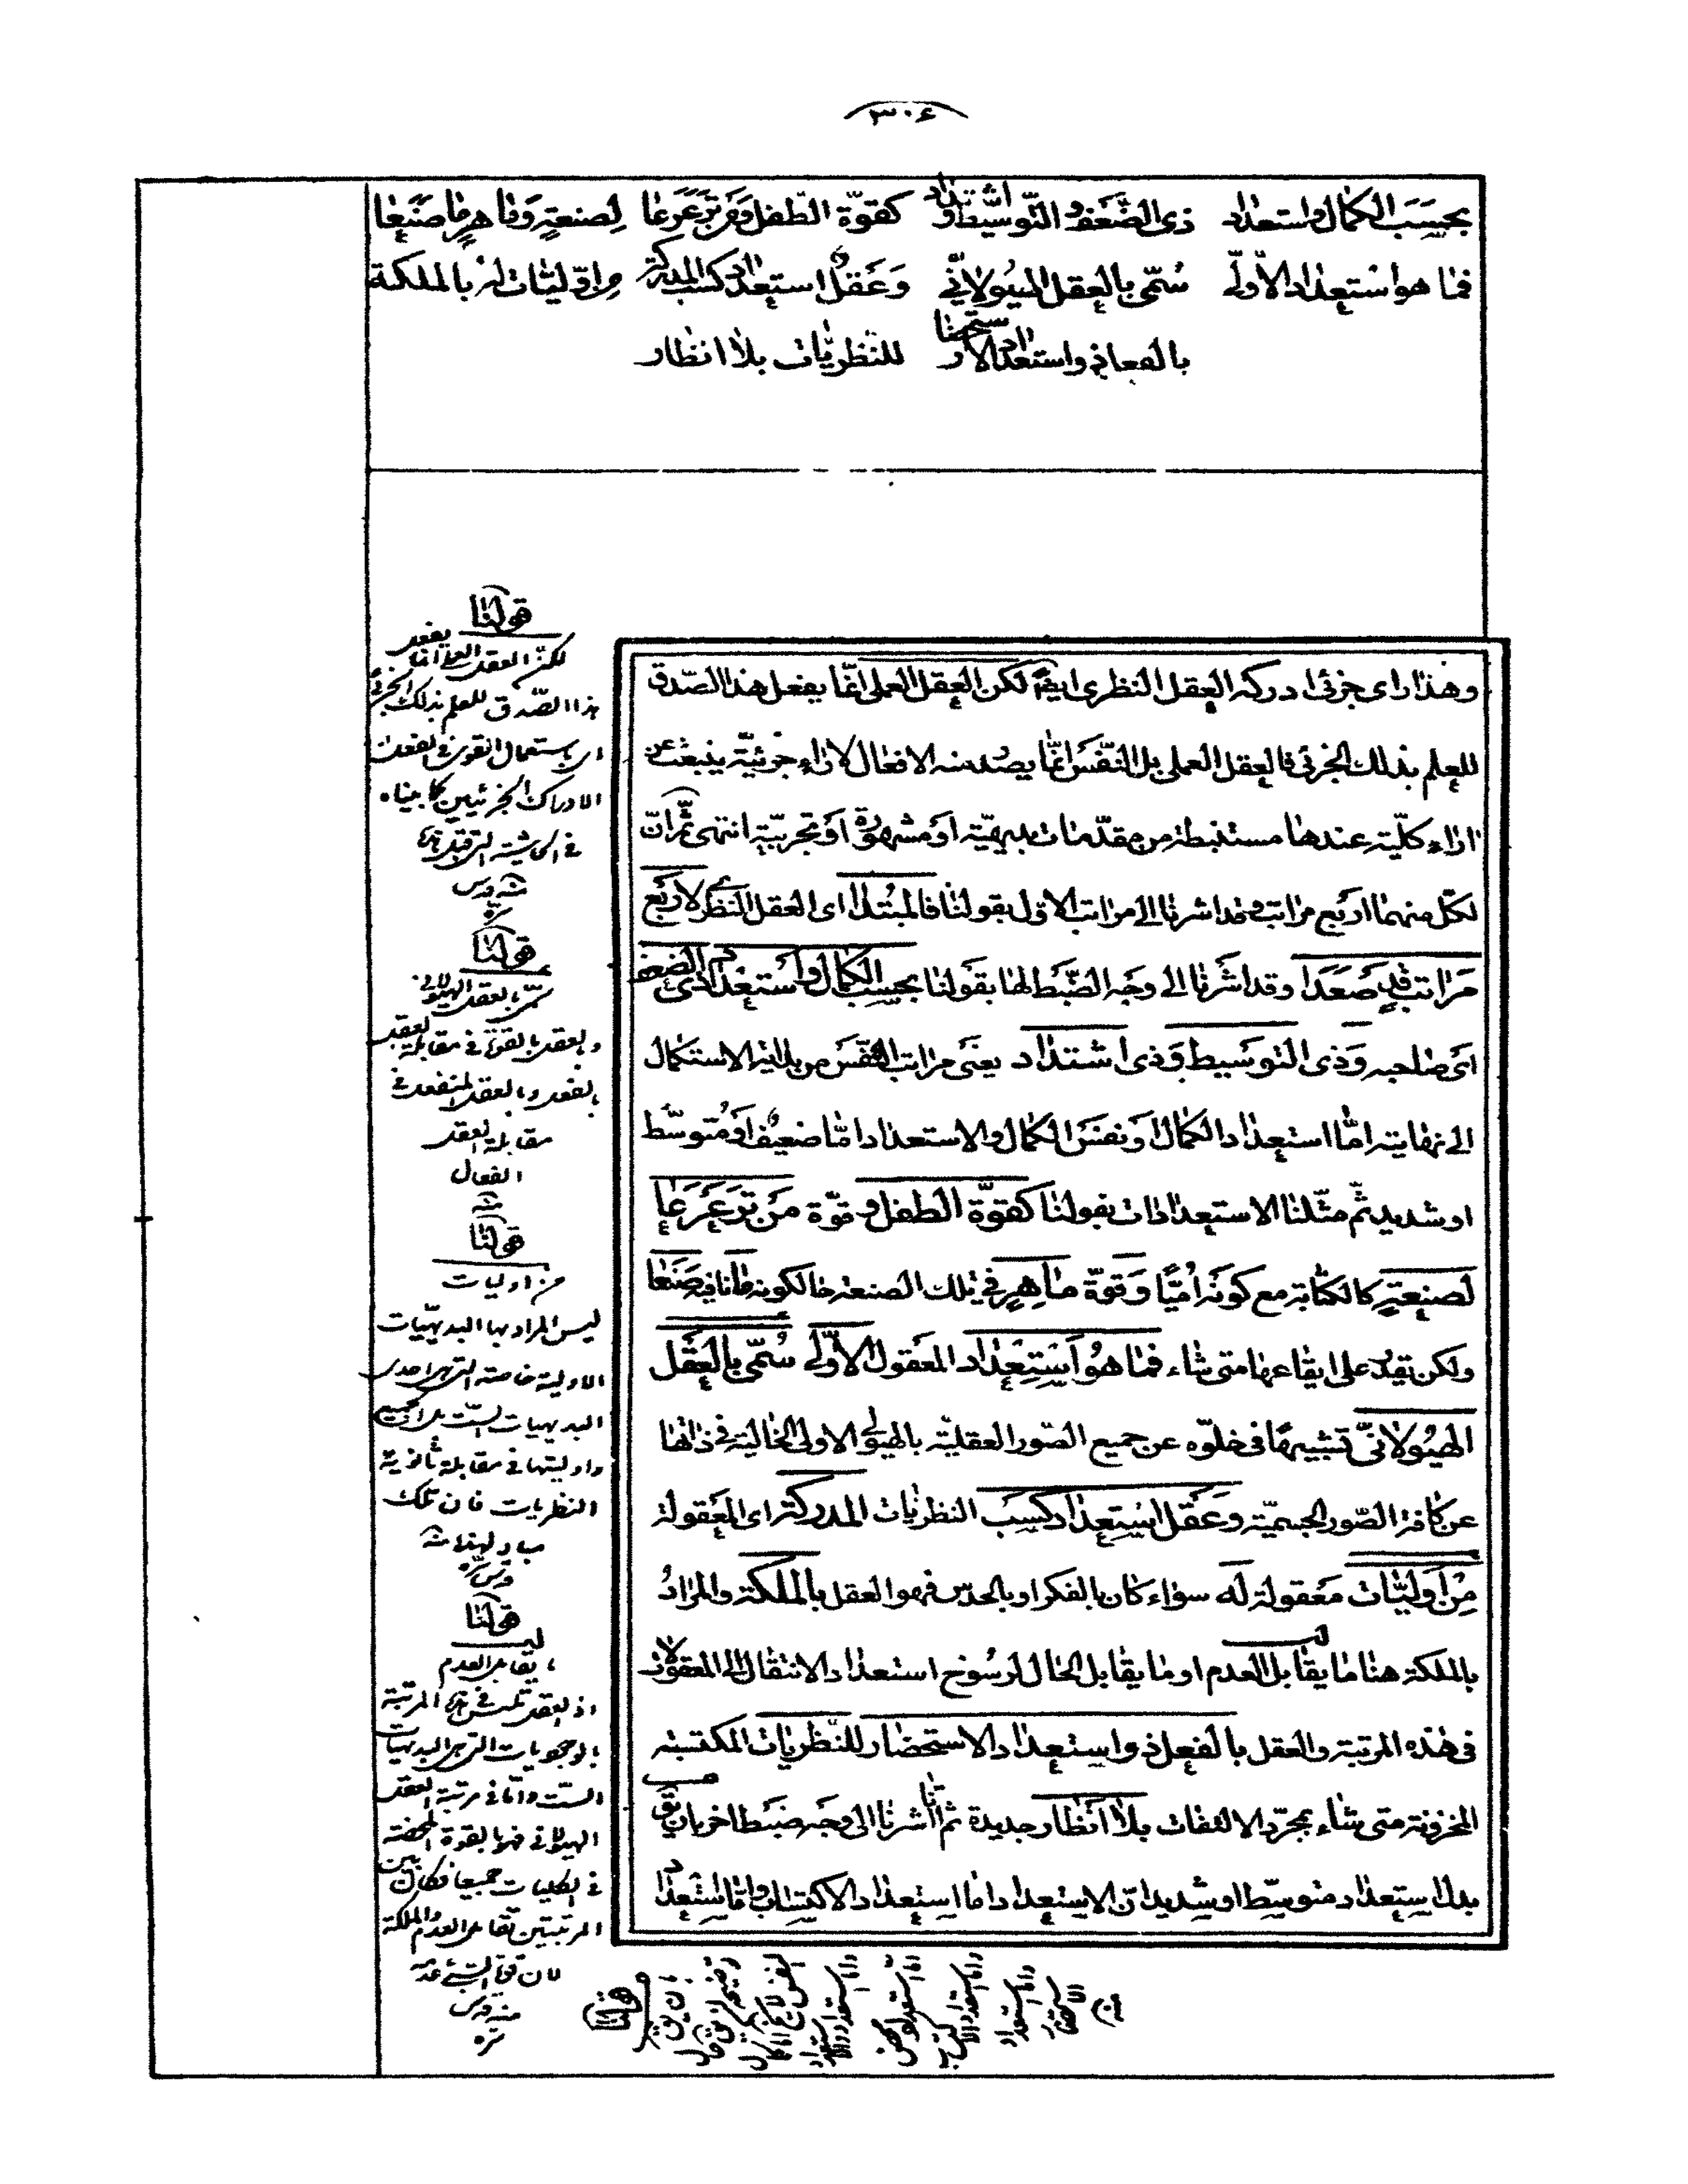 ٣٠٤
بحسب الكمال واستعداد ذى الضّعف والتّوسّط واشتداد كقوّة الطّفل ومن ترعرعا لصنعةٍ وماهرٍ ما صنعا
فما هو استعداد الاولى سمّى بالعقل الهيولانىّ وعقل استعداد كسب المدركة من اوّليات له بالملكة
بالفعل ذو استعداد الاستحضار للنظريّات بلا انظار
وهذا راى جزئى ادركه العقل النظرى ايضاً لكن العقل العملى انّما يفعل هذا الصّدق
للعلم بذلك الجزئى فالعقل العملى بل النّفس انّما يصدر منه الافعال لآراء جزئيّة ينبعث عن
آراء كليّة عندها مستنبطة من مقدّمات بديهيّة او مشهورة او تجربيّة انتهى ثمّ انّ
لكل منهما اربع مراتب وقد اشرنا الى مراتب الاوّل بقولنا فالمبتدا اى العقل النظرى لاربع
مراتب قد صعدا وقد اشرنا الى وجه الضّبط لها بقولنا بحسب الكمال واستعداد ذى الضعف
اى صاحبه وذى التوسيط وذى اشتداد يعنى مراتب النّفس من بداية الاستكمال
الى نهايته امّا استعداد الكمال او نفس الكمال والاستعداد امّا ضعيف او متوسّط
او شديد ثمّ مثّلنا الاستعدادات بقولنا كقوّة الطفل و قوّة من ترعرعا
لصنعةٍ كالكتابة مع كونه امّيّاً وقوّة ماهرٍ فى تلك الصنعة حالكونه ما نافية صنعا
ولكن يقدر على ايقاعها متى شاء فما هو استعداد المعقول الاوّلى سمّى بالعقل
الهيولانىّ تشبيهاً فى خلوّه عن جميع الصّور العقليّة بالهيولى الاولى الخالية فى ذاتها
عن كافة الصّور الجسميّة وعقل استعداد كسب النظريات المدركة اى المعقولة
من اوليّات معقولة له سواء كان بالفكر او بالحدس فهو العقل بالملكة والمراد
بالملكة هنا ما يقابل العدم او ما يقابل الحال لرسوخ استعداد الانتقال الى المعقولات
فى هذه المرتبة والعقل بالفعل ذو استعداد الاستحضار للنّظريات المكتسبة
المخزونة متى شاء بمجرّد الالتفات بلا انظار جديدة ثم انّا اشرنا الى وجه ضبط اخر بان يق
بدل استعداد متوسّط او شديد انّ الاستعداد اما استعداد الاكتساب وامّا استعداد
قولنا
لكنّ العقل العملى انما يفعل
هذا الصّدق للعلم بذلك الجزئى
اى باستعمال القوى
الادراك الجزئيين كما بيناه
فى الحاشية التى قبل هذه
منه قدس
سرّه
قولنا
سمّى بالعقل الهيولانى
وبالعقل بالقوّة فى مقابلة العقل
بالفعل وبالعقل المنفعل فى
مقابلة العقل
الفعال
منه
قولنا
من اوليات
ليس المراد بها البديهيّات
الاولية خاصة التى هى احدى
البديهيات الستّ بل الجميع
واوليتها فى مقابلة ثانوية
النظريات فان تلك
مباد لهذه منه
قدس سرّه
قولنا
ما يقابل العدم
اذ العقل تلبس فى هذه المرتبة
بالوجوديات التى هى البديهيات
الستّ وامّا فى مرتبة العقل
الهيولانى فهو بالقوة المحضة
فى الكليات جميعا فكان بين
المرتبتين تقابل العدم والملكة
لان قوّة الشىء عدمه
منه قدس
سرّه
قولنا
بان يق
واما استعداد
الاستحضار
منه